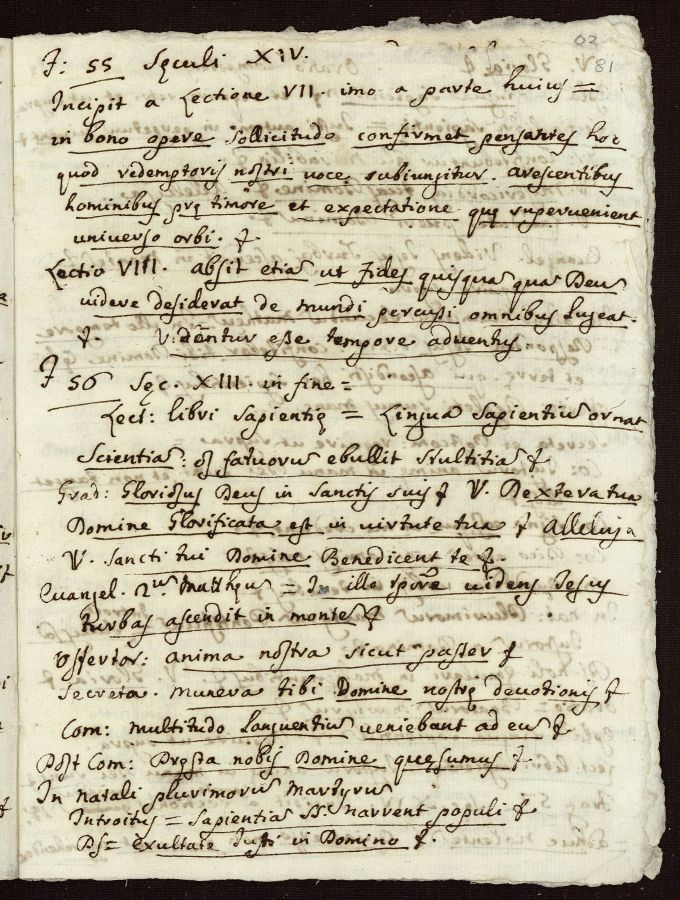 62
81
F: 55 Sęculi XIV.
Incipit a Lectione VII. imo a parte huius =
in bono opere sollicitudo confirmet pensantes hoc
quod redemptoris nostri voce subiungitur. arescentibus
hominibus prę timore et expectatione quę supervenient
universo orbi. &
Lectio VIII. absit etia ut Fides quisqua qua Deu
videre desiderat de mundi percussi omnibus lugeat.
&. Videntur esse tempore adventus
F 56 Sęc. XIII. in fine =
Lect: libri Sapientię = Lingua Sapientiu ornat
Scientia: os fatuoru ebullit stultitia &
Grad: Gloriosus Deus in Sanctis suis & V. Dextera tua
Domine Glorificata est in virtute tua & alleluja
V. Sancti tui Domine Benedicent te &.
Euangel. 2.um Matthęu = In illo tpore videns Jesus
turbas ascendit in monte &
Offertor: anima nostra sicut passer &
Secreta. munera tibi Domine nostrę devotionis &
Com: multitudo Languentiu veniebant ad eu &
Post Com: Pręsta nobis Domine quęsumus &
In natali plurimoru Martyru
Introitus = Sapientia SS. narrent populi &
Ps = exultate Justi in Domino &.